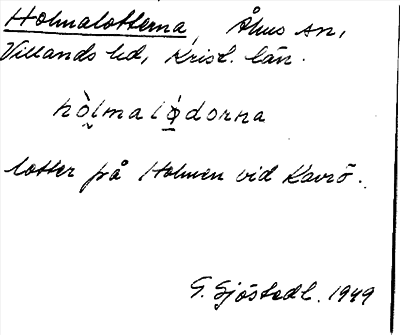 Holmalotterna, Åhus sn,
Villands hd, Krist. län.
hòlmalǿdorna
lotter på Holmen vid Kavrö.
G. Sjöstedt. 1949